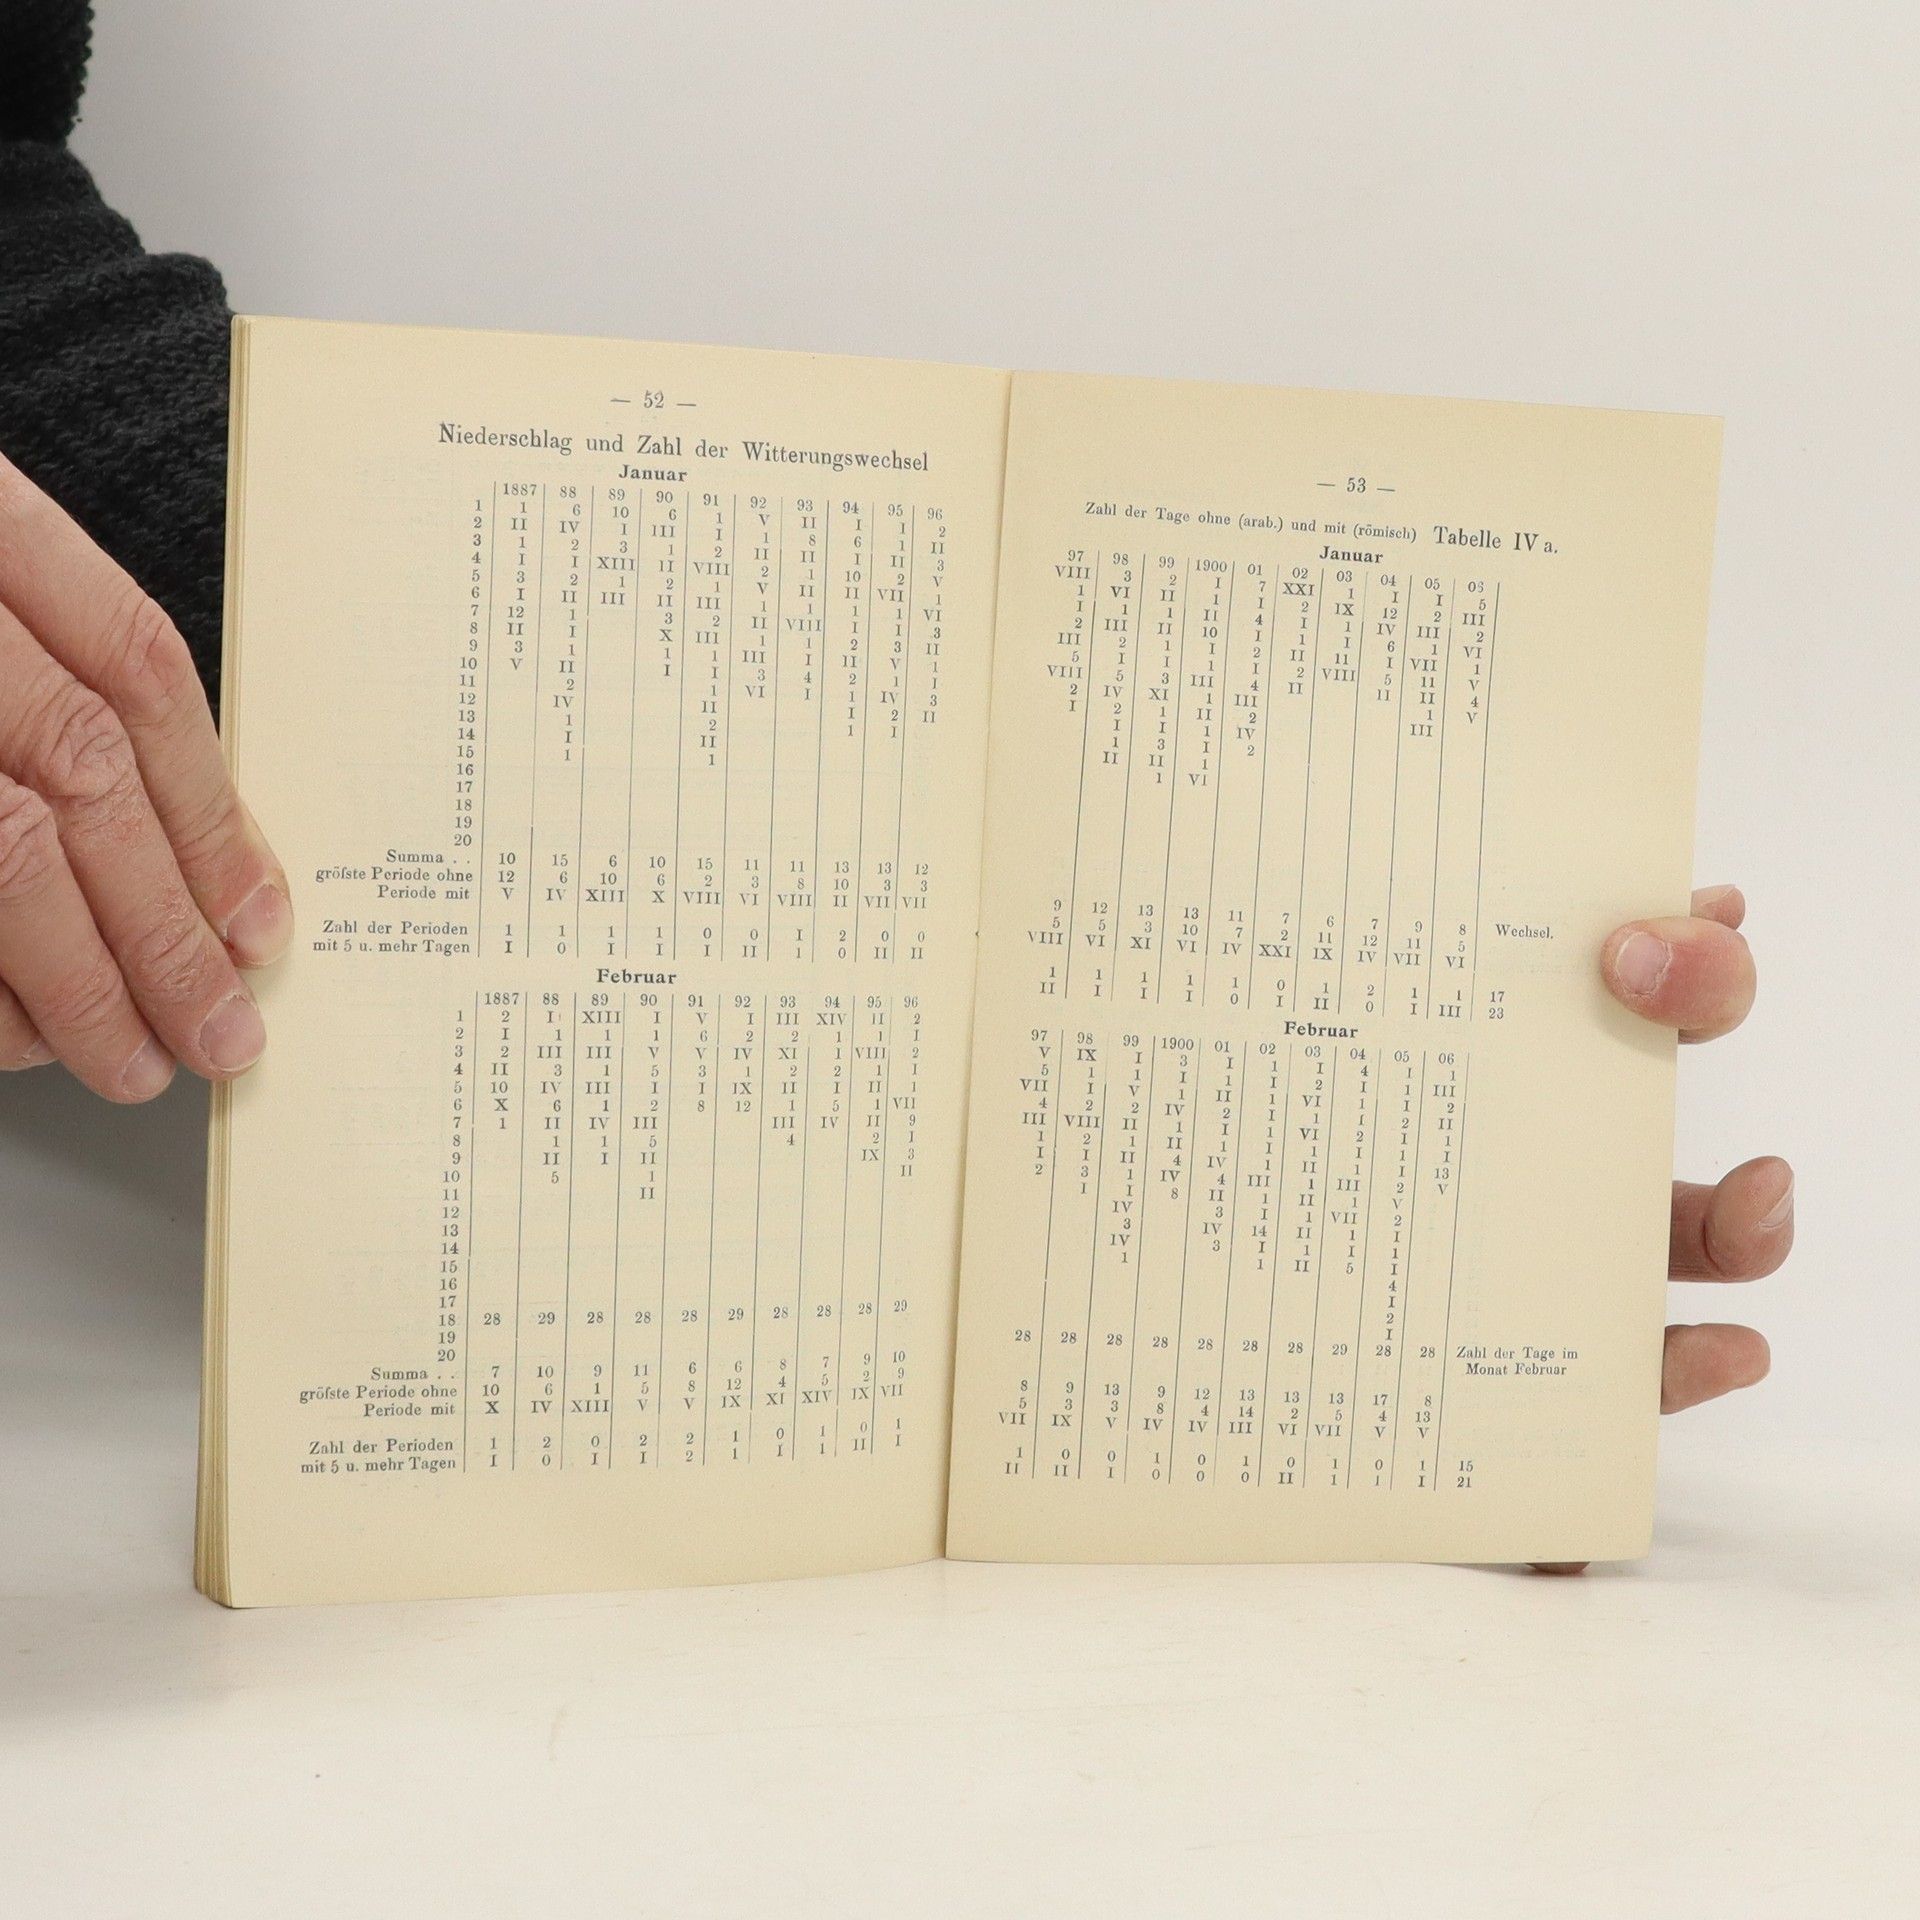 — 52 —
Niederschlag und Zahl der Witterungswechsel
Januar
1887 88 89 90 91 92 93 94 95 96
1 1 6 10 6 1 V II I I 2
2 II IV I III I 1 8 6 1 II
3 1 2 3 1 2 II II I II 3
4 I I XIII II VIII 2 1 10 2 V
5 3 2 1 2 1 V II II VII 1
6 I II III II III 1 1 1 1 VI
7 12 1 3 2 II VIII I I 3
8 II I X III 1 1 2 3 II
9 3 1 1 1 III I II V 1
10 V II I I 3 4 2 1 I
11 2 1 VI I 1 IV 3
12 IV II I 2 II
13 1 2 1 I
14 I II
15 1 1
16
17
18
19
20
Summa . . 10 15 6 10 15 11 11 13 13 12
gröſste Periode ohne 12 6 10 6 2 3 8 10 3 3
Periode mit V IV XIII X VIII VI VIII II VII VII
Zahl der Perioden 1 1 1 1 0 0 I 2 0 0
mit 5 u. mehr Tagen I 0 I I I II 1 0 II II
Februar
1887 88 89 90 91 92 93 94 95 96
1 2 I XIII I V I III XIV II 2
2 I 1 1 1 6 2 2 1 1 I
3 2 III III V V IV XI I VIII 2
4 II 3 1 5 3 1 2 2 1 I
5 10 IV III I I IX II I II 1
6 X 6 1 2 8 12 1 5 1 VII
7 1 II IV III III IV II 9
8 1 1 5 4 2 I
9 II I II IX 3
10 5 1 II
11 II
12
13
14
15
16
17
18 28 29 28 28 28 29 28 28 28 29
19
20
Summa . . 7 10 9 11 6 6 8 7 9 10
gröſste Periode ohne 10 6 1 5 8 12 4 5 2 9
Periode mit X IV XIII V V IX XI XIV IX VII
Zahl der Perioden 1 2 0 2 2 1 0 1 0 1
mit 5 u. mehr Tagen I 0 I I 2 1 I 1 II I
— 53 —
Zahl der Tage ohne (arab.) und mit (römisch) Tabelle IV a.
Januar
97 98 99 1900 01 02 03 04 05 06
VIII 3 2 I 7 XXI 1 I I 5
1 VI II 1 I 2 IX 12 2 III
I 1 1 II 4 I 1 IV III 2
2 III II 10 I 1 I 6 1 VI
III 2 1 I 2 II 11 I VII 1
5 I I 1 I 2 VIII 5 11 V
VIII 5 3 III 4 II II II 4
2 IV XI 1 III 1 V
I 2 1 II 2 III
I I 1 IV
1 3 I 2
II II 1
1 VI
9 12 13 13 11 7 6 7 9 8 Wechsel.
5 5 3 10 7 2 11 12 11 5
VIII VI XI VI IV XXI IX IV VII VI
1 1 1 1 1 0 1 2 1 1 17
II I I I 0 I II 0 I III 23
Februar
97 98 99 1900 01 02 03 04 05 06
V IX I 3 I 1 I 4 I 1
5 1 1 I 1 I 2 I 1 III
VII I V 1 II 1 VI 1 I 2
4 2 2 IV 2 I 1 I 2 II
III VIII II 1 I 1 VI 2 I 1
1 2 1 II 1 I 1 I 1 I
I I II 4 IV 1 II 1 I 13
2 3 1 IV 4 III 1 III 2 V
I I 8 II 1 II 1 V
IV 3 I 1 VII 2
3 IV 14 II 1 I
IV 3 I 1 I 1
1 1 II 5 I
4
I
2
I
28 28 28 28 28 28 28 29 28 28 Zahl der Tage im
Monat Februar
8 9 13 9 12 13 13 13 17 8
5 3 3 8 4 14 2 5 4 13
VII IX V IV IV III VI VII V V
1 0 0 1 0 1 0 1 0 1 15
II II I 0 0 0 II 1 1 I 21